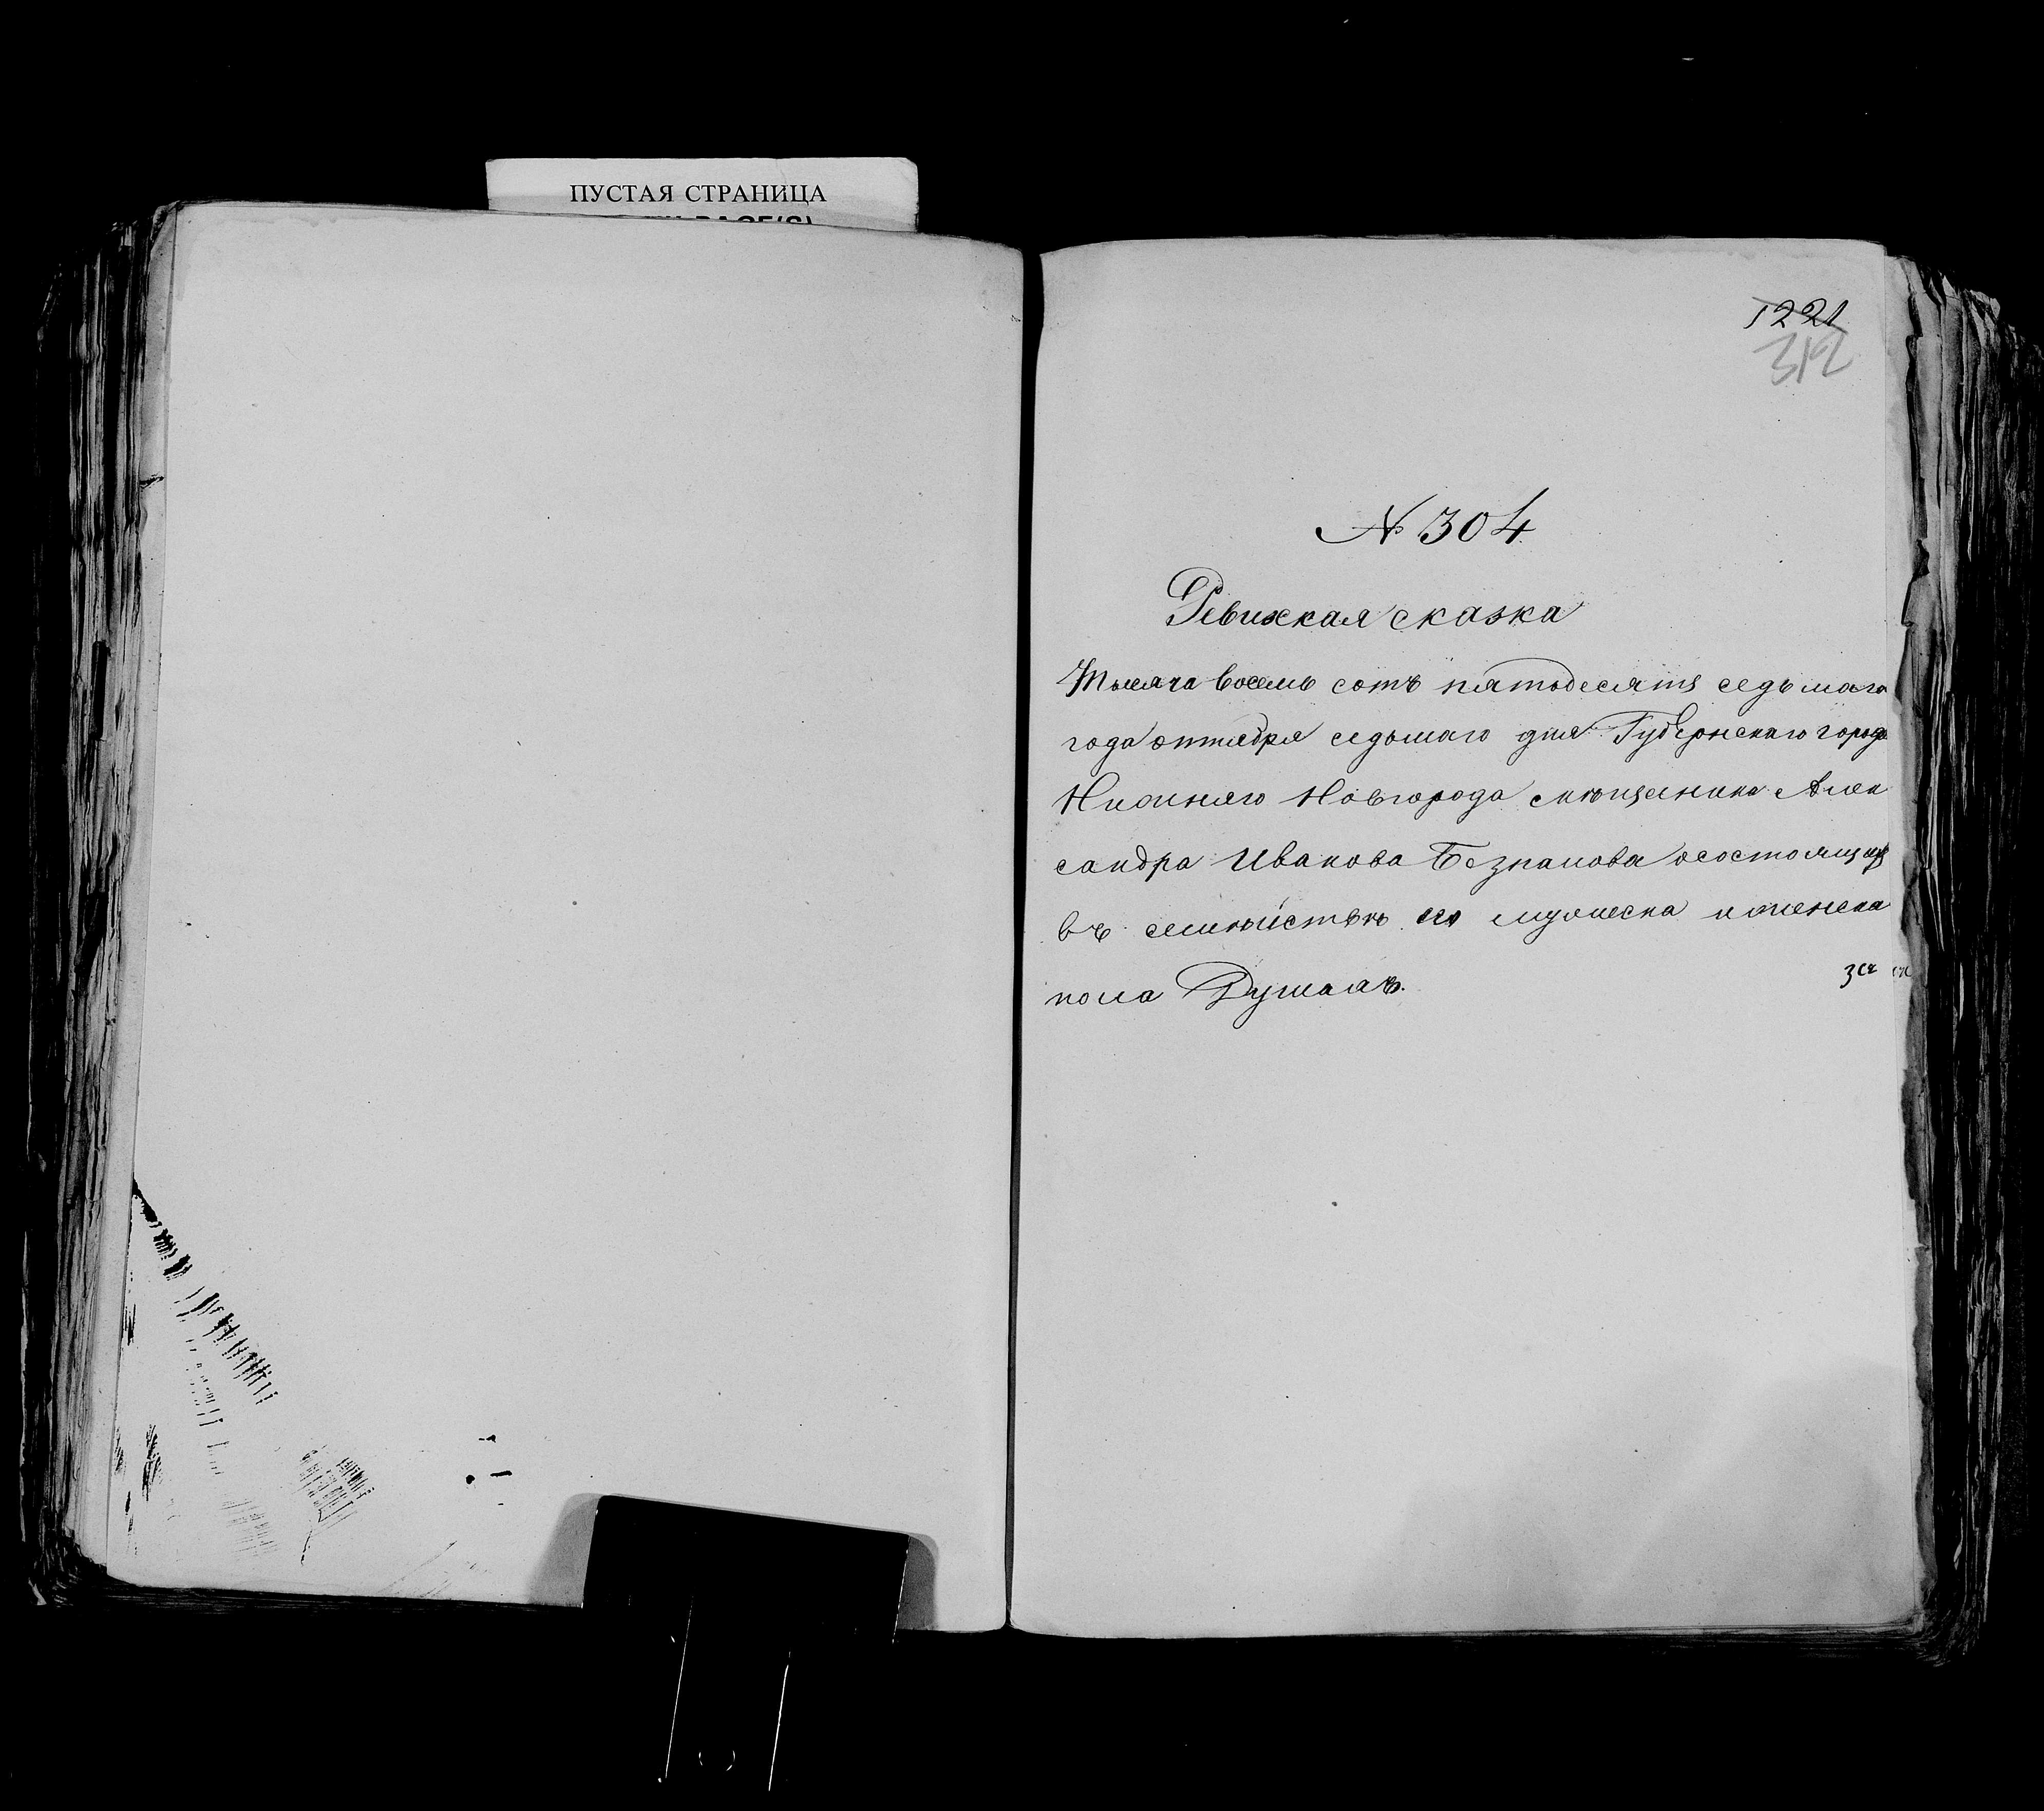 ПУСТАЯ СТРАНИЦА
1221
312
№ 304
Ревижская сказка
Тысяча восемь сотъ пятьдесятъ седьмаго
года октября седьмаго дня Губернскаго города
Нижняго Новгорода мѣщанина Алек
сандра Иванова осостоящихъ
въ семѣйствѣ его мужеска и женска
пола Душахъ.